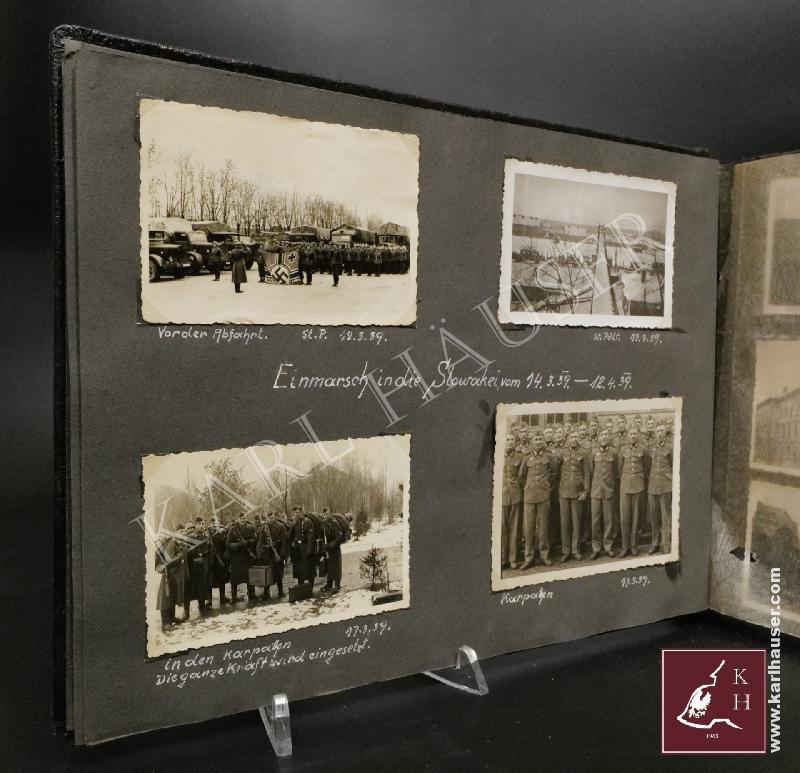 Vor der Abfahrt. St.P. 12.3.39.
St. Pölt. 13.3.39.
Einmarsch in die Slowakei, vom 14.3.39. — 12.4.39.
in den Karpaten 17.3.39.
Die ganze Kraft wird eingesetzt.
Karpaten 17.3.39.
KARL HÄUSER
K
H
1915
www.karlhauser.com